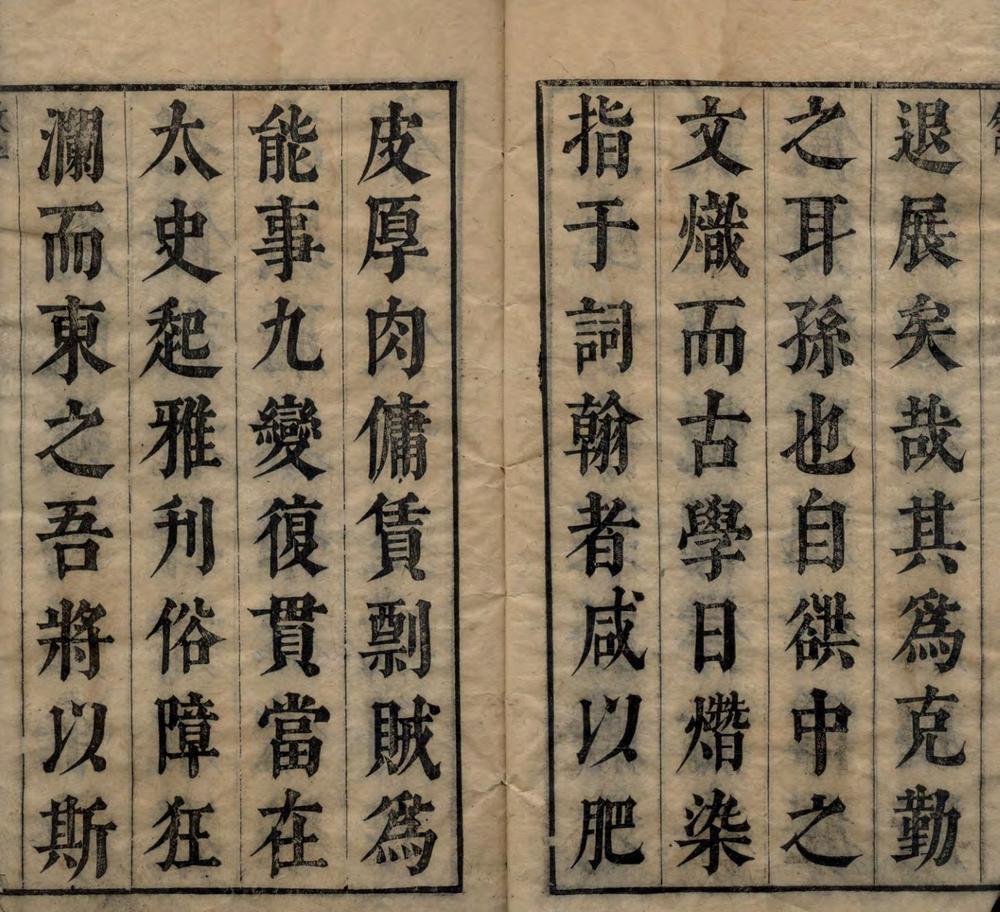 退展矣哉其爲克勤
之耳孫也自谼中之
文熾而古學日熸染
指于詞翰者咸以肥
皮厚肉傭賃剽賊爲
能事九變復貫當在
太史起雅刋俗障狂
瀾而東之吾將以斯